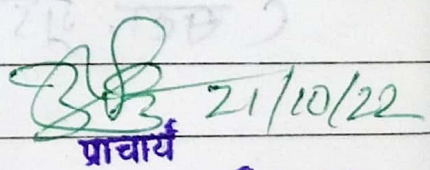 21/10/22
प्राचार्य